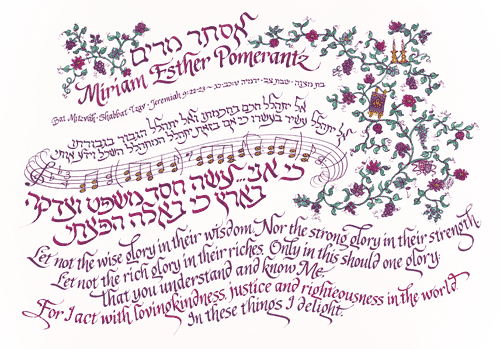 אסתר מרים
Miriam Esther Pomerantz
בת מצוה · שבת צו · ירמיה
Bat Mitzvah · Shabbat Tzav · Jeremiah 9:22-23
אל יתהלל חכם בחכמתו ואל יתהלל הגבור בגבורתו
אל יתהלל עשיר בעשרו כי אם בזאת יתהלל המתהלל השכל וידע אותי
כי אני... עשה חסד משפט וצדקה
בארץ כי באלה חפצתי
Let not the wise glory in their wisdom. Nor the strong glory in their strength.
Let not the rich glory in their riches. Only in this should one glory:
that you understand and know Me.
For I act with lovingkindness, justice and righteousness in the world.
In these things I delight.